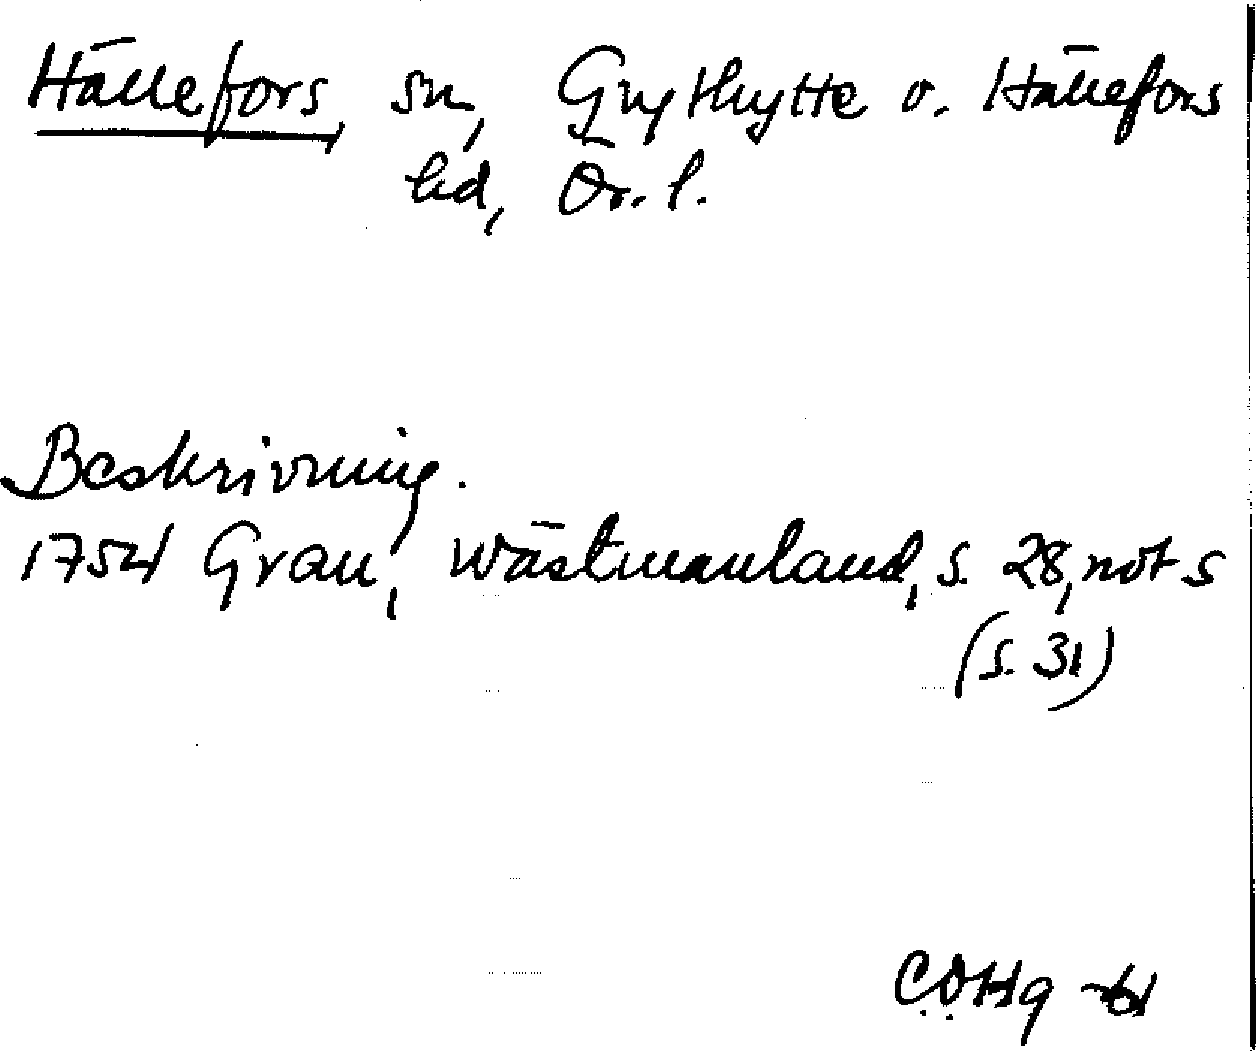 Hällefors, sn, Grythytte o. Hällefors
bd, Ör. l.
Beskrivning.
1754 Grau, Wästmanland, s. 28, not s
(s. 31)